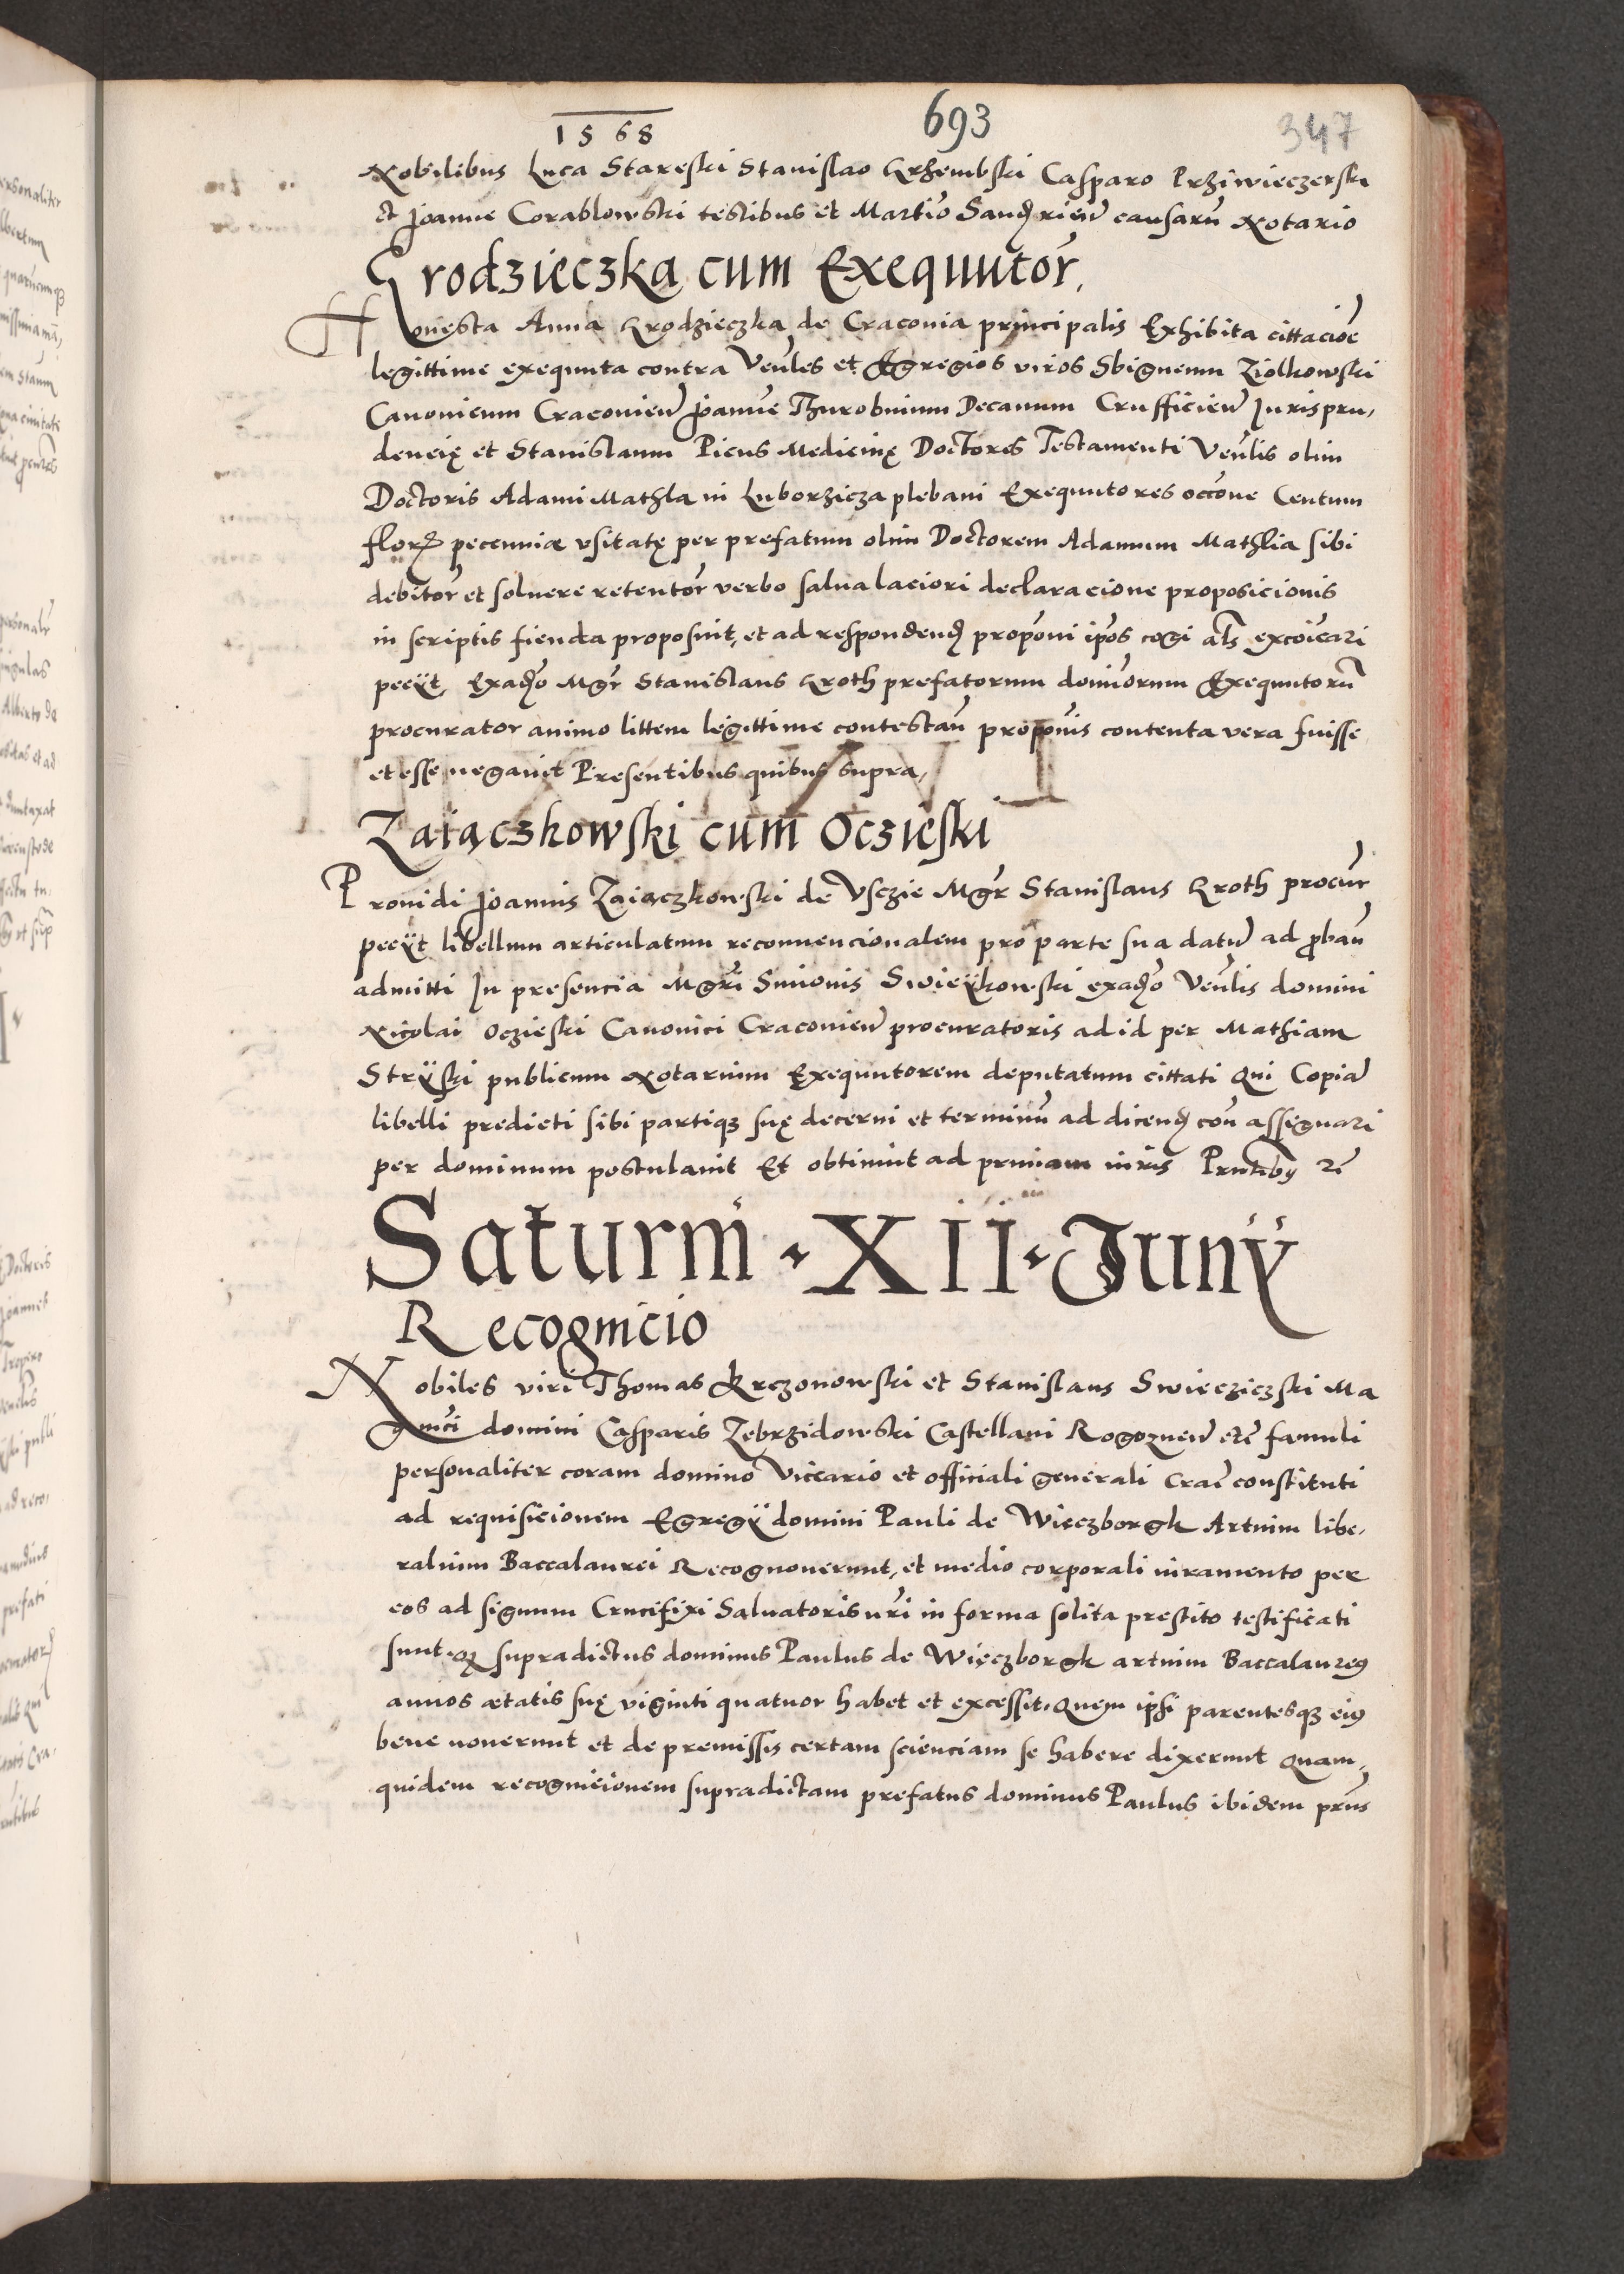 1568
693
347
Nobilibus Luca Stareski Stanislao Grzembski Casparo Przÿwieczerski
et Joanne Corablowski testibus et Martio Sandˀrieñ causarũ Notario
Grodzieczka cum Exequutor̃.
Honesta Anna Grodzieczka de Craconia principalis Exhibita cittacioẽ
legittime exequuta contra Veñles et Egregios viros Sbigneum Ziolkowski
Canonicum Cracovieñ Joannẽ Thurobinium Decanum Crufficieñ Jurispru,
dencię et Stanislaum Picus Medicinę Doctores Testamenti Veñlis olim
Doctoris Adami in Luborzicza plebani Exequutores occõne Centum
florꝝ pecuniæ vsitatę per prefatum olim Doctorem Adamum sibi
debitor̃ et soluere retentor̃ verbo salua laciori declaracione proposicionis
in scriptis fienda proposuit, et ad respondendꝭ propõni ip̃os cogi al̃s excõicari
peciit Exadꝭo Mgr̃ Stanislaus Groth prefatorum dominorum Exequutorũ
procurator animo littem legittime contestañ propõnis contenta vera fuisse
et esse negauit Presentibus quibus supra,
Zaiączkowski cum Oczieski
Prouidi Joannis Zaiączkowski de Vsczie Mgr̃ Stanislaus Groth procur̃
peciit libellum articulatum reconuencionalem pro parte sua datũ ad ꝓbañ
admitti In presencia Mgr̃i Simonis Swieÿkowski exadꝭo Veñlis domini
Nicolai Oczieski Canonici Cracovieñ procuratoris ad id per Mathiam
Strÿski publicum Notarium Exequutorem deputatum cittati Qui Copiã
libelli predicti sibi partiqꝫ suę decerni et terminũ ad dicendꝭ coñ assignari
per dominum postulauit Et obtinuit ad primam iuris Prntibꝰ
Saturni · XII · Junÿ
Recognicio
Nobiles viri Thomas Krczonowski et Stanislaus Swiecziczski Ma
gnifici domini Casparis Zebrzidowski Castellani Rogoznen̄ etc̃ famuli
personaliter coram domino Viccario et officiali generali Crac̃ constituti
ad requisicionem Egregÿ domini Pauli de Więczborgk Artium libe,
ralium Baccalaurei Recognouerunt, et medio corporali iuramento per
eos ad signum Crucifixi Saluatoris nr̃i in forma solita prestito testificati
sunt. qꝫ supradictus dominus Paulus de Więczborgk artium Baccalaureꝰ
annos ætatis suę viginti quatuor habet et excessit. Quem ipsi parentesqꝫ eiꝰ
bene nouerunt et de premissis certam scienciam se habere dixerunt Quam,
quidem recognicionem supradictam prefatus dominus Paulus ibidem prñs